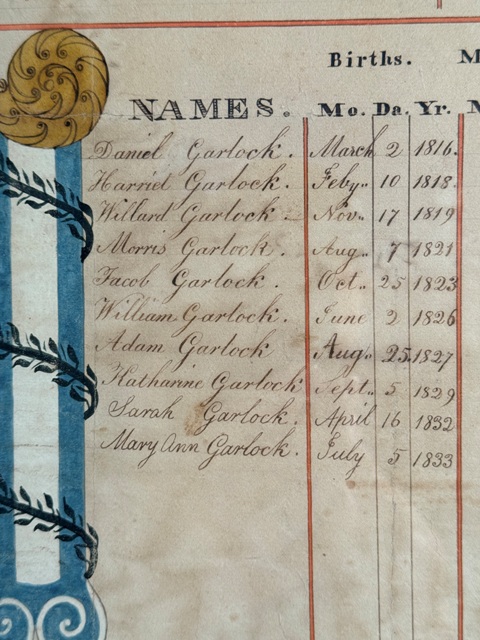 Births. M
NAMES. Mo. Da. Yr.
Daniel Garlock. March 2 1816.
Harriet Garlock. Feby.. 10 1818.
Willard Garlock. Nov.. 17 1819
Morris Garlock. Aug.. 7 1821
Jacob Garlock. Oct.. 25 1823
William Garlock. June 2 1826
Adam Garlock Aug.. 25 1827
Katharine Garlock Sept.. 5 1829
Sarah Garlock. April 16 1832
Mary Ann Garlock. July 5 1833